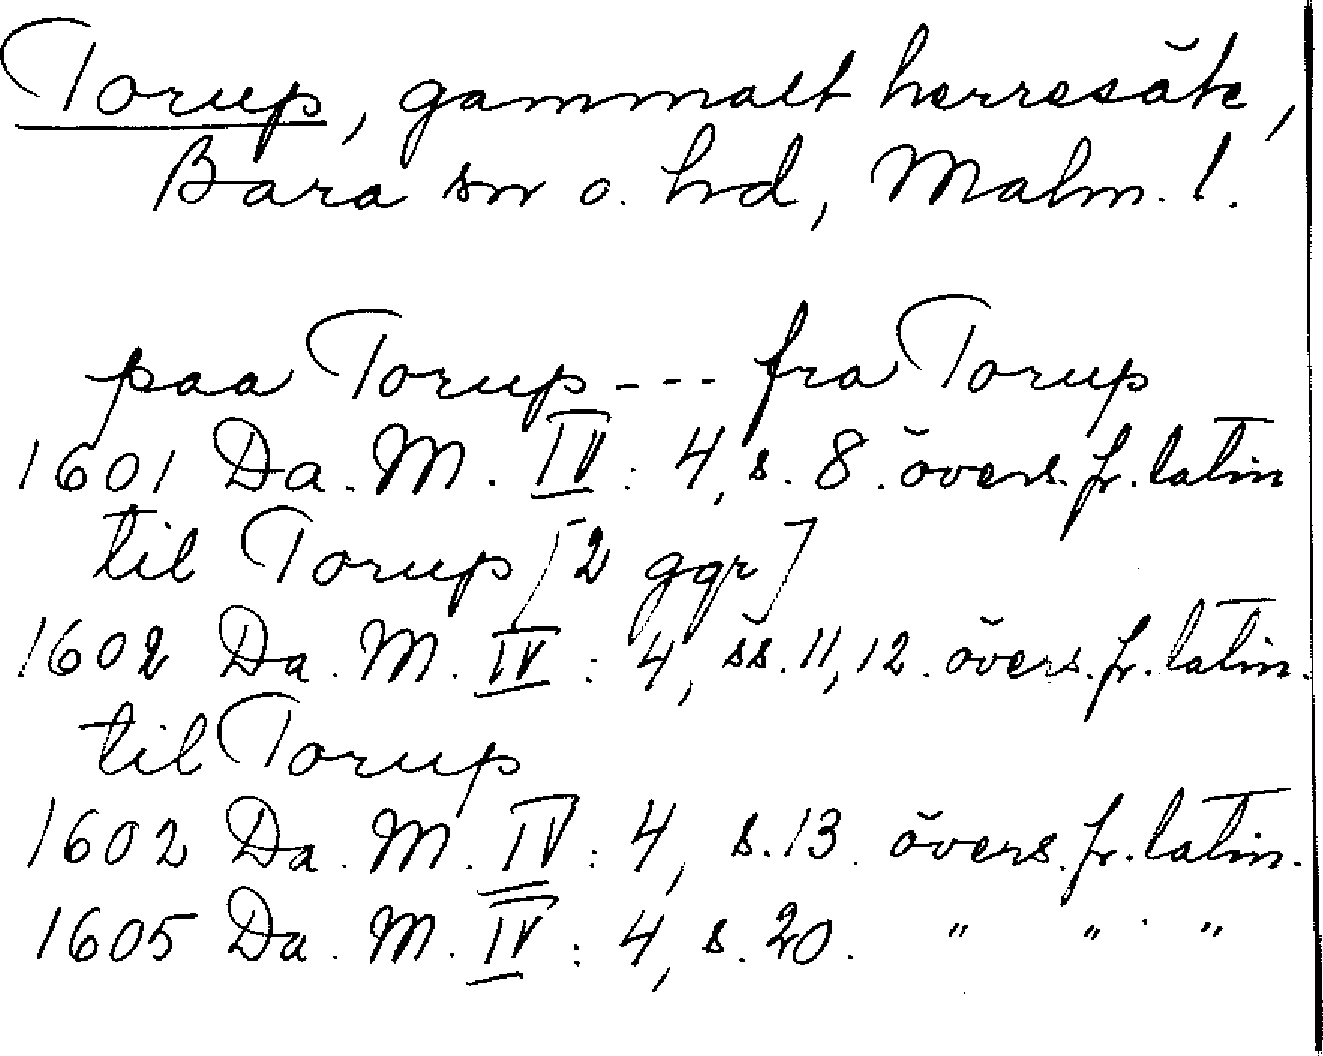 Torup, gammalt herresäte,
Bara sn o. hd, Malm. l.
paa Torup --- fra Torup
1601 Da. M. IV : 4, s. 8. övers. fr. latin
til Torup [2 ggr]
1602 Da. M. IV : 4, ss. 11, 12. övers. fr. latin.
til Torup
1602 Da. M. IV : 4, s. 13. övers. fr. latin.
1605 Da. M. IV : 4, s. 20. " " . "